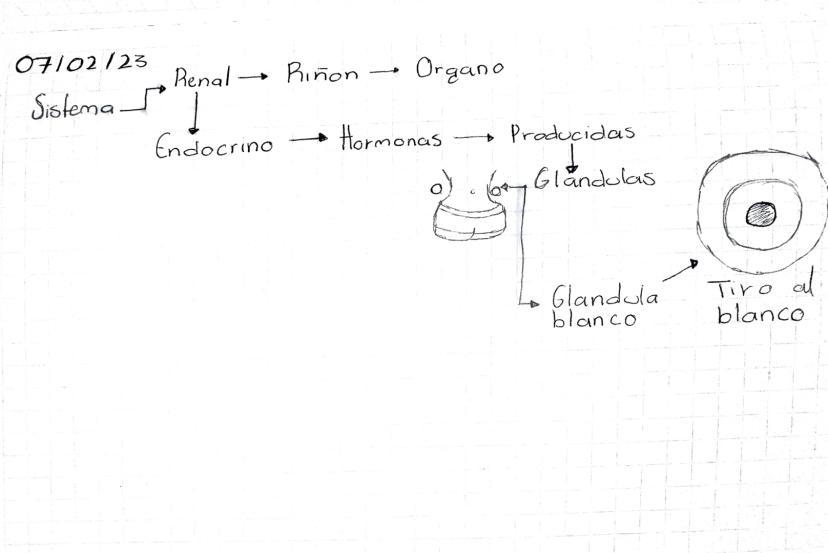 07/02/23
Renal → Riñon → Organo
Sistema
Endocrino → Hormonas → Producidas
Glándulas
Glandula
blanco
Tiro al
blanco